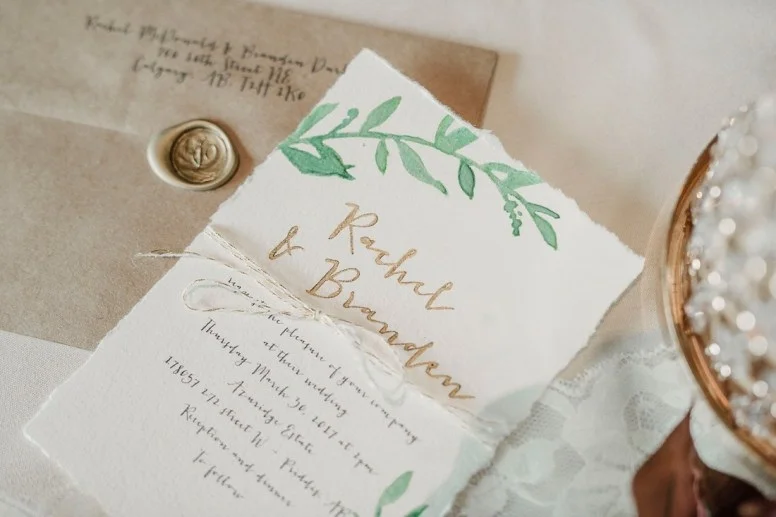 Rachel McDonald & Branden
700 10th Street NE
Calgary, AB
Rachel
& Branden
the pleasure of your company
at their wedding
Thursday March 30, 2017 at 2pm
Azuridge Estate
178057 272 Street W - Priddis, AB
Reception and dinner
to follow